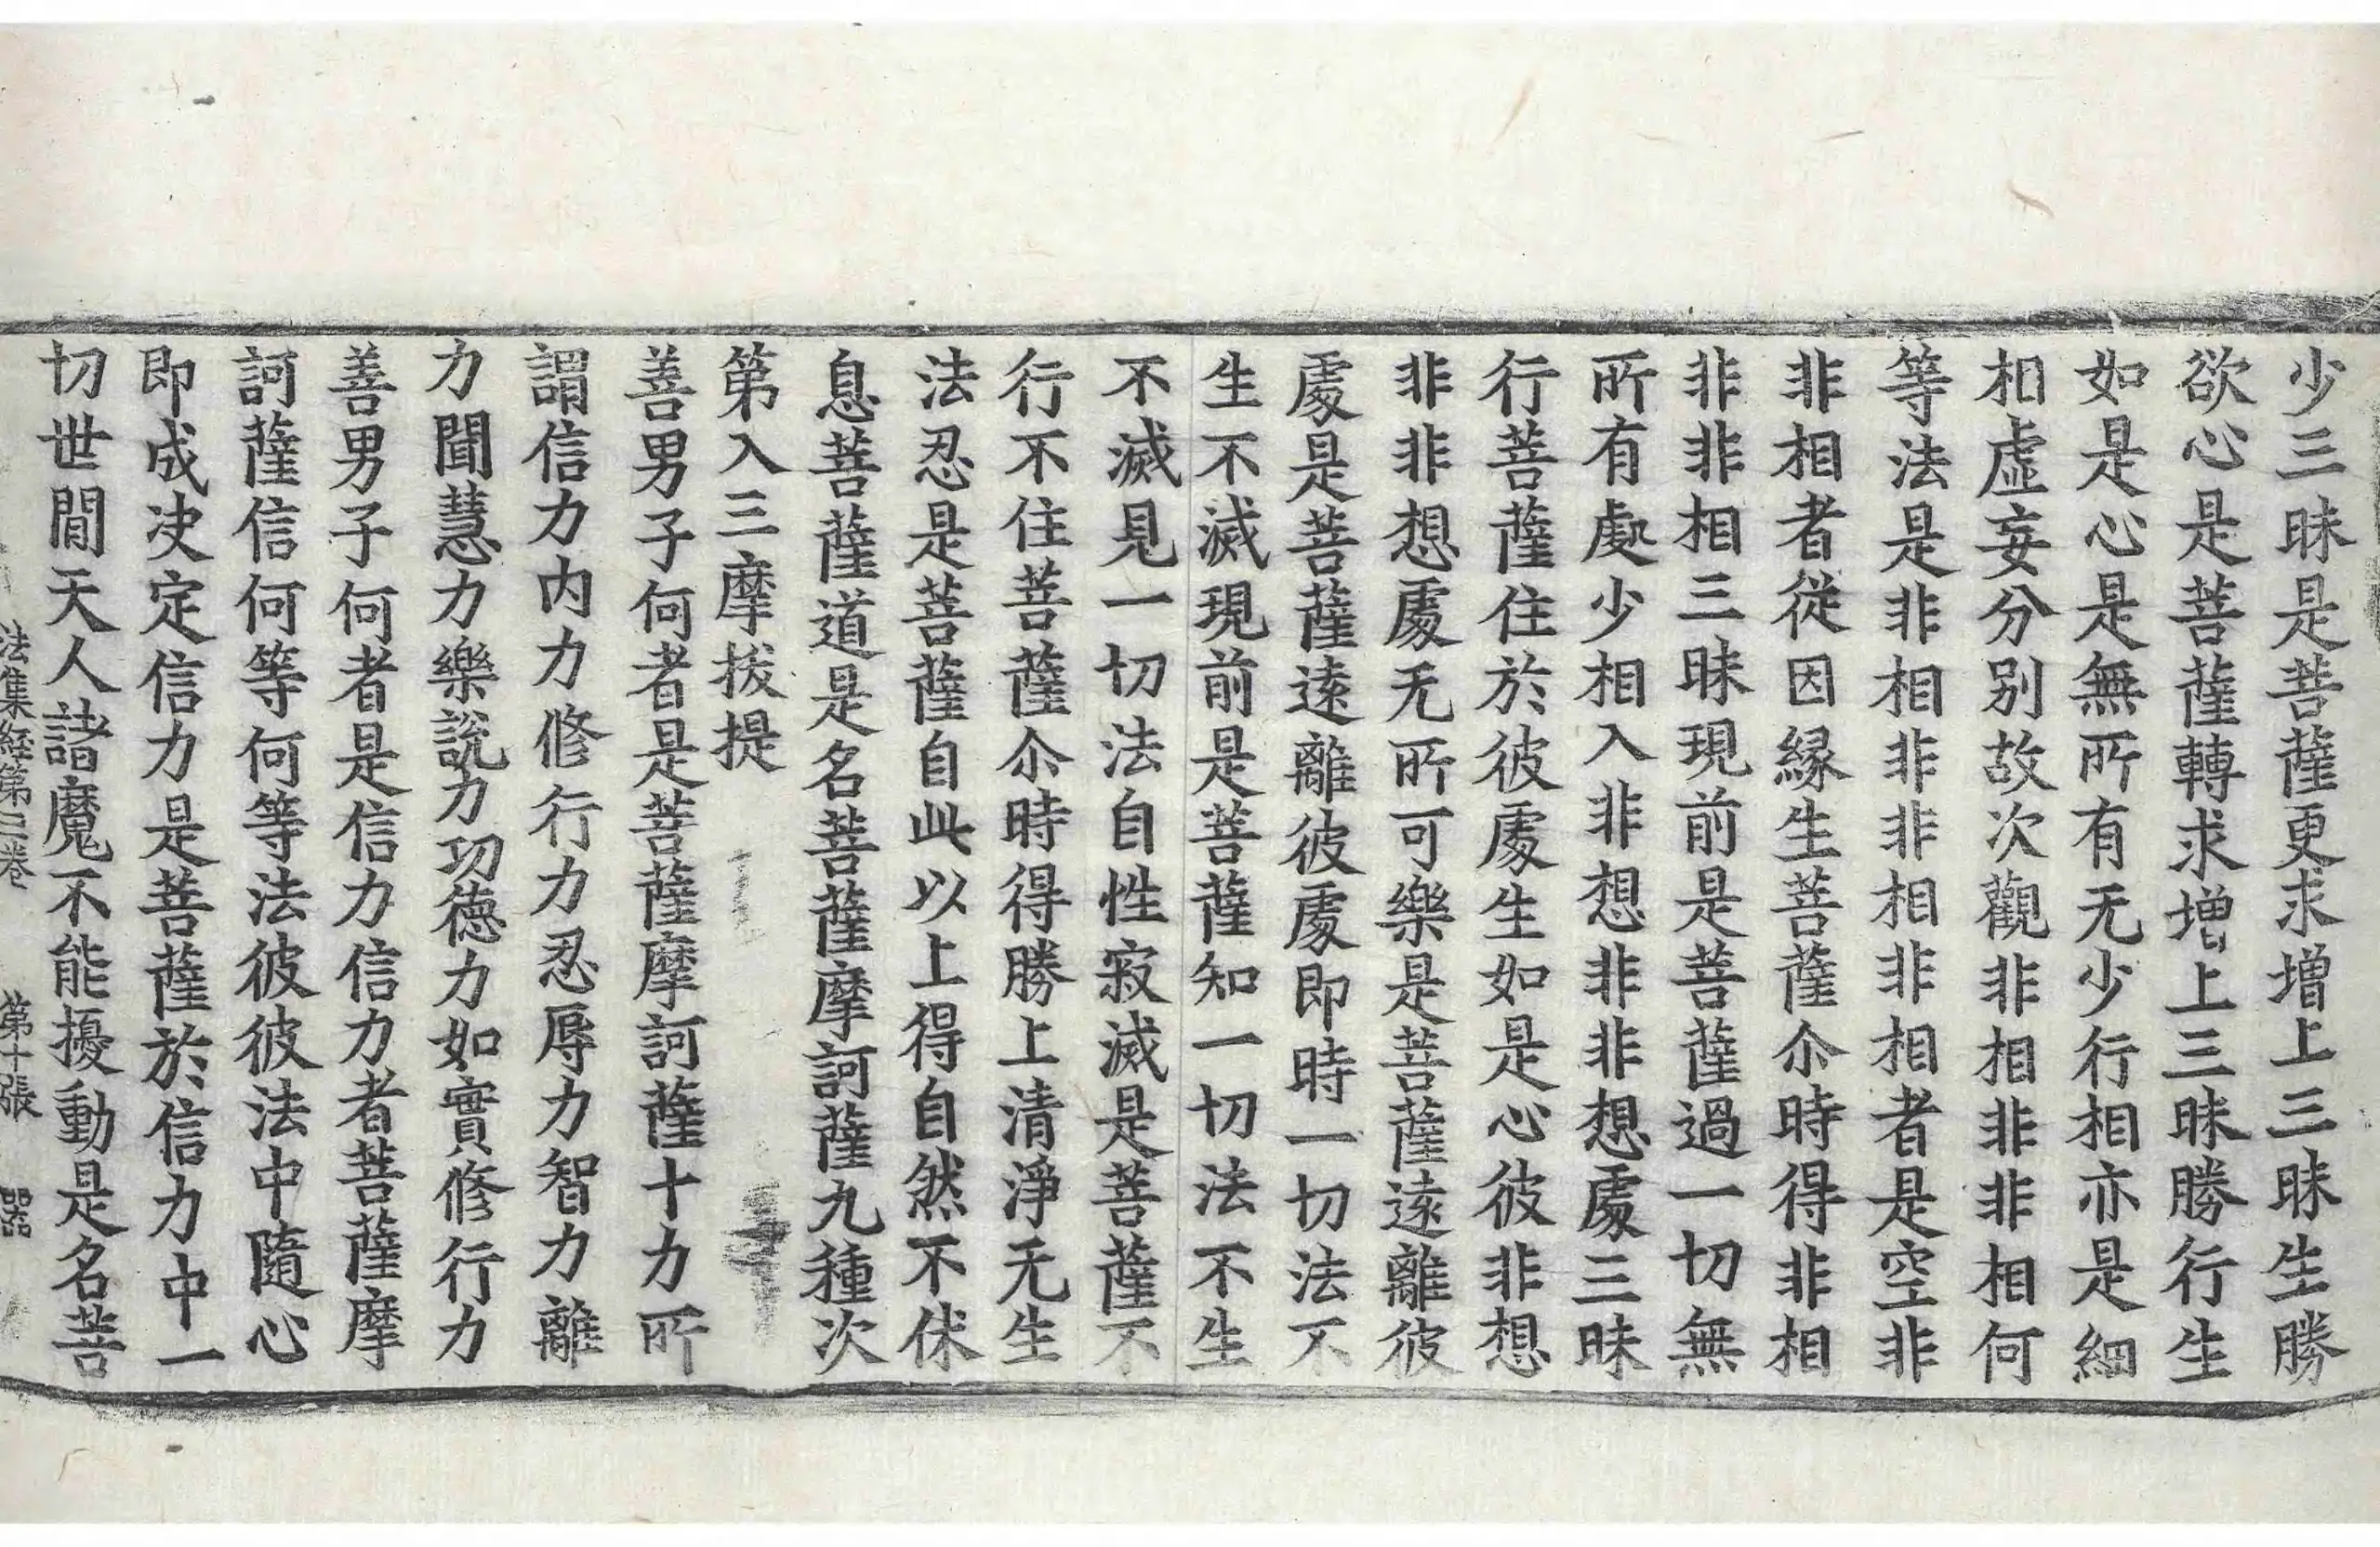 少三昧是菩薩更求增上三昧生勝
欲心是菩薩轉求增上三昧勝行生
如是心是無所有无少行相亦是細
相虛妄分別故次觀非相非非相何
等法是非相非非相非相者是空非
非相者從因緣生菩薩尒時得非相
非非相三昧現前是菩薩過一切無
所有處少相入非想非非想處三昧
行菩薩住於彼處生如是心彼非想
非非想處无所可樂是菩薩遠離彼
處是菩薩遠離彼處即時一切法不
生不滅現前是菩薩知一切法不生
不滅見一切法自性寂滅是菩薩不
行不住菩薩尒時得勝上清淨无生
法忍是菩薩自此以上得自然不休
息菩薩道是名菩薩摩訶薩九種次
第入三摩拔提
善男子何者是菩薩摩訶薩十力所
謂信力內力修行力忍辱力智力離
力聞慧力樂說力功德力如實修行力
善男子何者是信力信力者菩薩摩
訶薩信何等何等法彼彼法中隨心
即成決定信力是菩薩於信力中一
切世間天人諸魔不能擾動是名菩
法集經第三卷 第十張 器